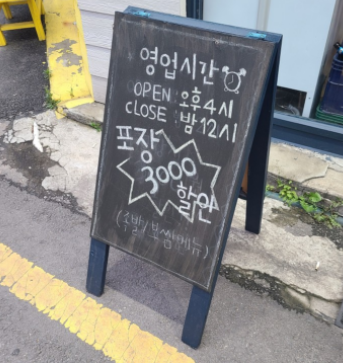 영업시간
OPEN : 오후4시
CLOSE : 밤12시
포장
3000
할인
(족발/보쌈메뉴)